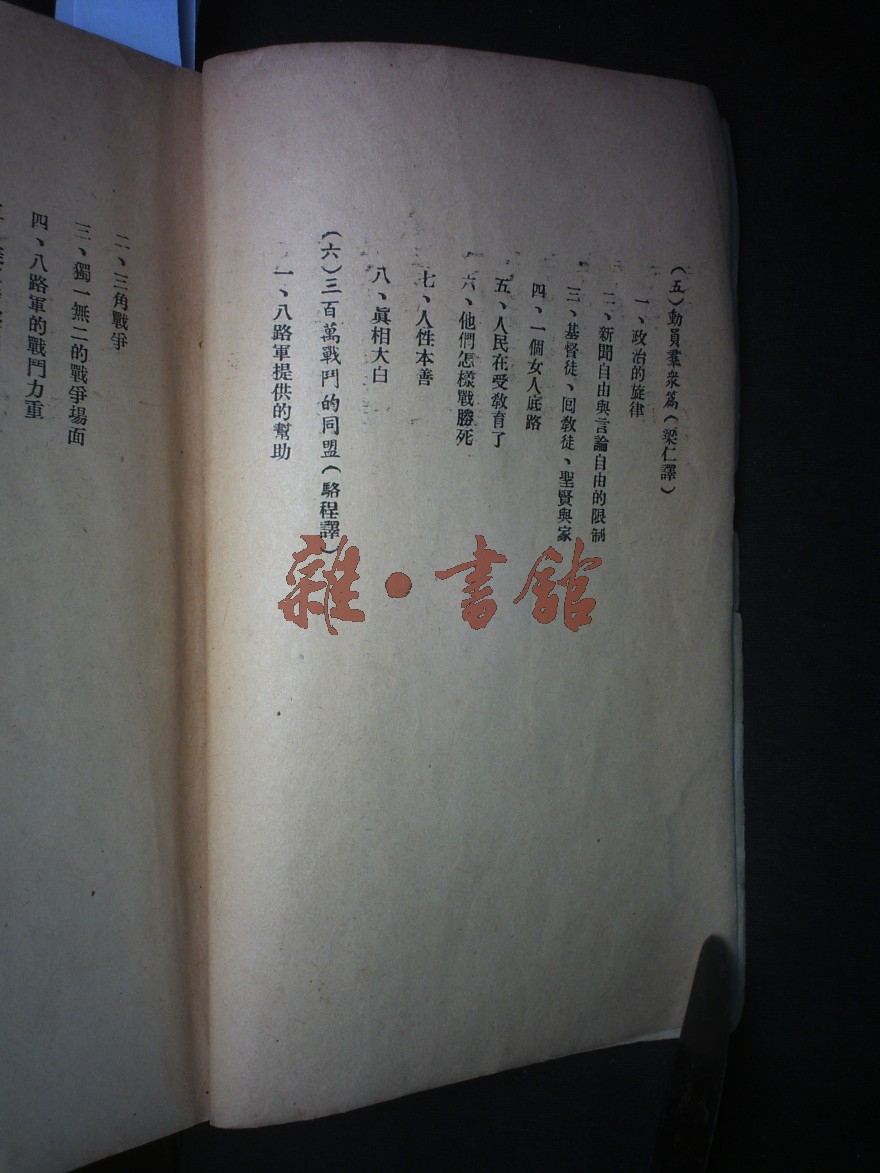 (五)動員羣衆篇(梁仁譯)
一、政治的旋律
二、新聞自由與言論自由的限制
三、基督徒、回敎徒、聖賢與家
四、一個女人底路
五、人民在受敎育了
六、他們怎樣戰勝死
七、人性本善
八、眞相大白
(六)三百萬戰鬥的同盟(駱程譯)
一、八路軍提供的幫助
二、三角戰爭
三、獨一無二的戰爭場面
四、八路軍的戰鬥力重
雜·書館